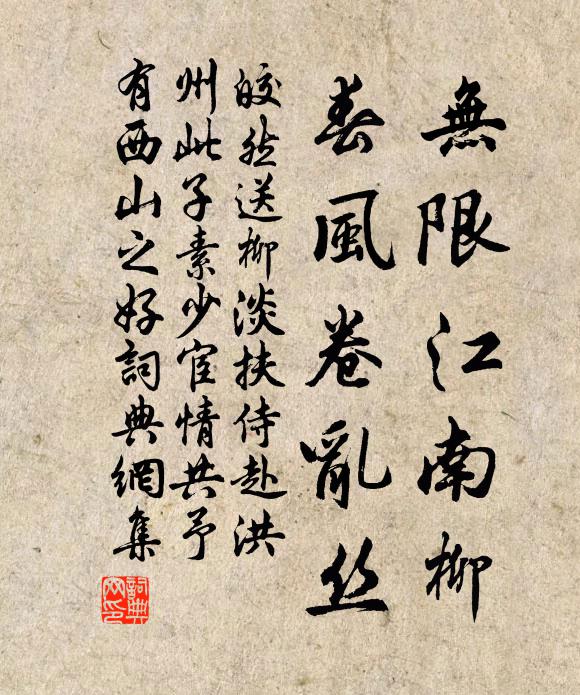 無限江南柳
春風卷亂絲
皎然送柳淡扶侍赴洪
州此子素少宦情共予
有西山之好詞典網集
詞典
网印